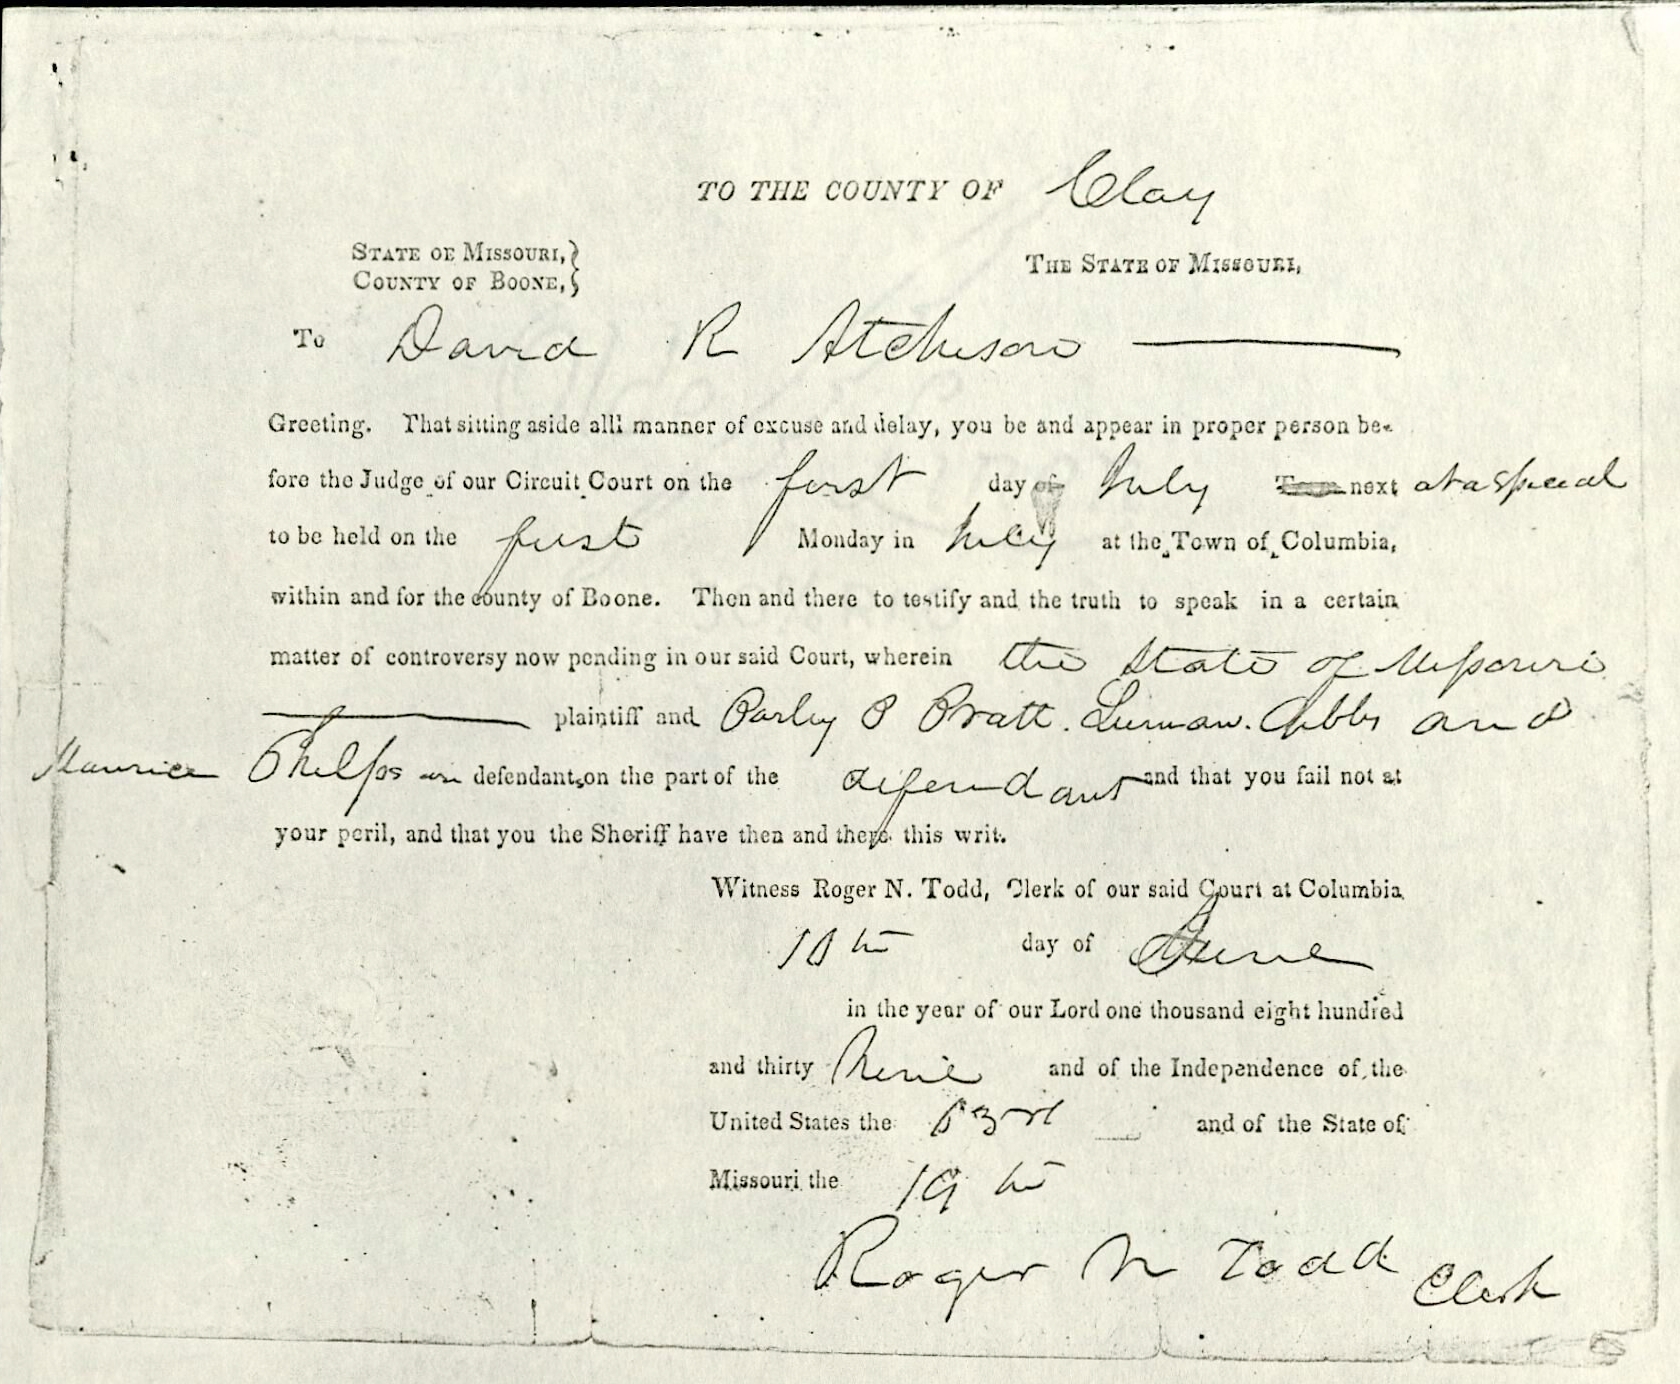 TO THE COUNTY OF Clay
STATE OF MISSOURI,} THE STATE OF MISSOURI,
COUNTY OF BOONE,}
To David R Atchison
Greeting. That sitting aside alll manner of excuse and delay, you be and appear in proper person be-
fore the Judge of our Circuit Court on the first day of July Term next at a Special
to be held on the first Monday in July at the Town of Columbia,
within and for the county of Boone. Then and there to testify and the truth to speak in a certain
matter of controversy now pending in our said Court, wherein the State of Missouri
plaintiff and Parley P Pratt. Luman. Gibbs and
Maurice Phelps are defendants on the part of the defendant and that you fail not at
your peril, and that you the Sheriff have then and there this writ.
Witness Roger N. Todd, Clerk of our said Court at Columbia
10th day of June
in the year of our Lord one thousand eight hundred
and thirty Nine and of the Independence of the
United States the 63rd and of the State of
Missouri the 19th
Roger N Todd Clerk